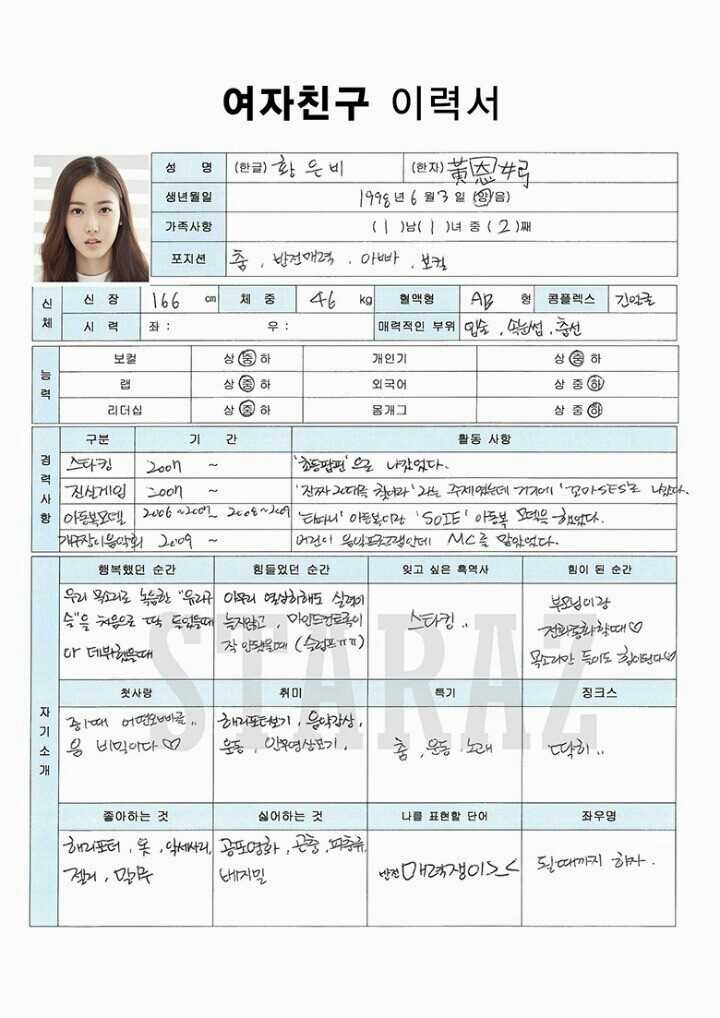 여자친구 이력서
성 명 (한글) 황은비 (한자) 黃
생년월일 1998년 6월 3일 (양/음)
가족사항 (1)남(1)녀 중(2)째
포지션 춤, 반전매력, 아빠, 보컬
신체
신 장 166 cm 체 중 46 kg 혈액형 AB 형 콤플렉스 긴얼굴
시 력 좌: 우: 매력적인 부위 입술, 속눈썹, 춤선
능력
보컬 상 중 하 개인기 상 중 하
랩 상 중 하 외국어 상 중 하
리더십 상 중 하 몸개그 상 중 하
경력사항
구분 기 간 활동 사항
스타킹 2007 ~ '초등팝핀'으로 나갔었다.
진실게임 2007 ~ '진짜 20대를 찾아라' 라는 주제였는데 거기에 '꼬마SES'로 나갔다.
아동복모델 2006~2007 2008~2009 아동복이랑 'SOIE' 아동복 모델을 했었다.
2009 ~ 어린이 음악프로그램인데 MC를 맡았었다.
자기소개
행복했던 순간 힘들었던 순간 잊고 싶은 흑역사 힘이 된 순간
우리 목소리로 녹음한 "유리구
슬"을 처음으로 딱 들었을때
아 데뷔했을때
아무리 연습해도 실력이
늘지않고, 마인드컨트록이
잘 안됐을때 (슬럼프ㅠㅠ)
스타킹..
부모님이랑
전화통화할때♡
목소리만 들어도 힘이된다♡
첫사랑 취미 특기 징크스
중1때 어떤오빠를..
음 비밀이다♡
해리포터보기, 음악감상,
운동, 안무영상보기,
춤, 운동, 노래
딱히..
좋아하는 것 싫어하는 것 나를 표현할 단어 좌우명
해리포터, 옷, 악세사리,
젤리,
공포영화, 곤충, 파충류,
베지밀
반전매력쟁이>_<
될때까지 하자.
STARAZ